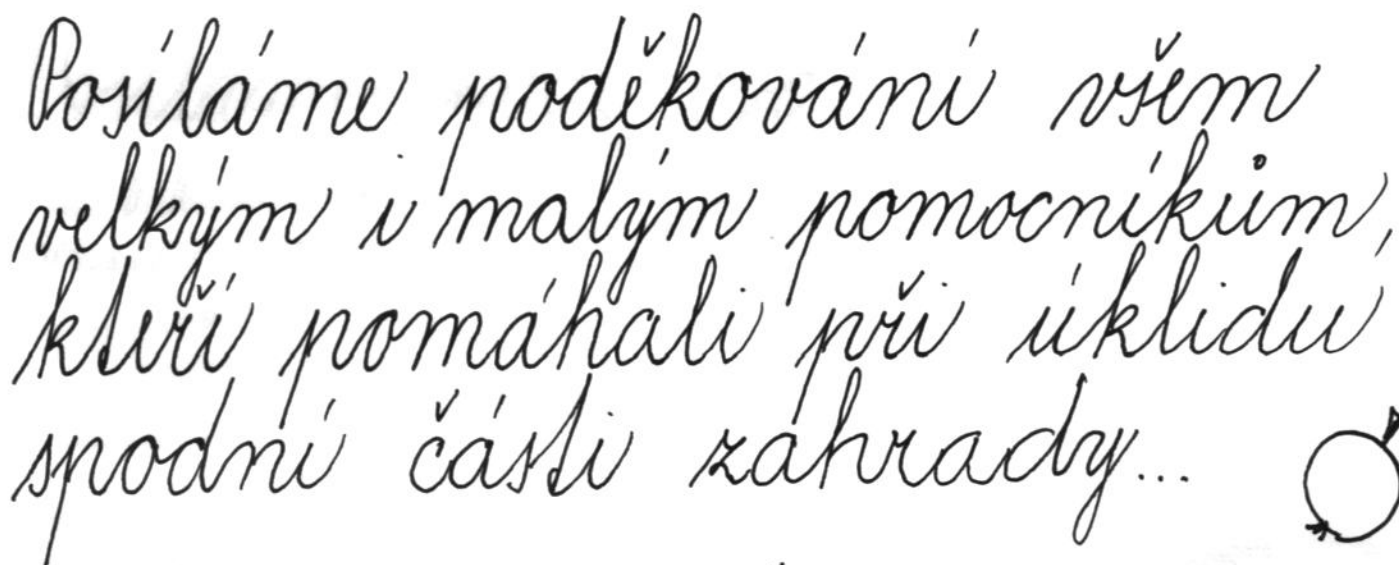 Posíláme poděkování všem
velkým i malým pomocníkům,
kteří pomáhali při úklidu
spodní části zahrady...